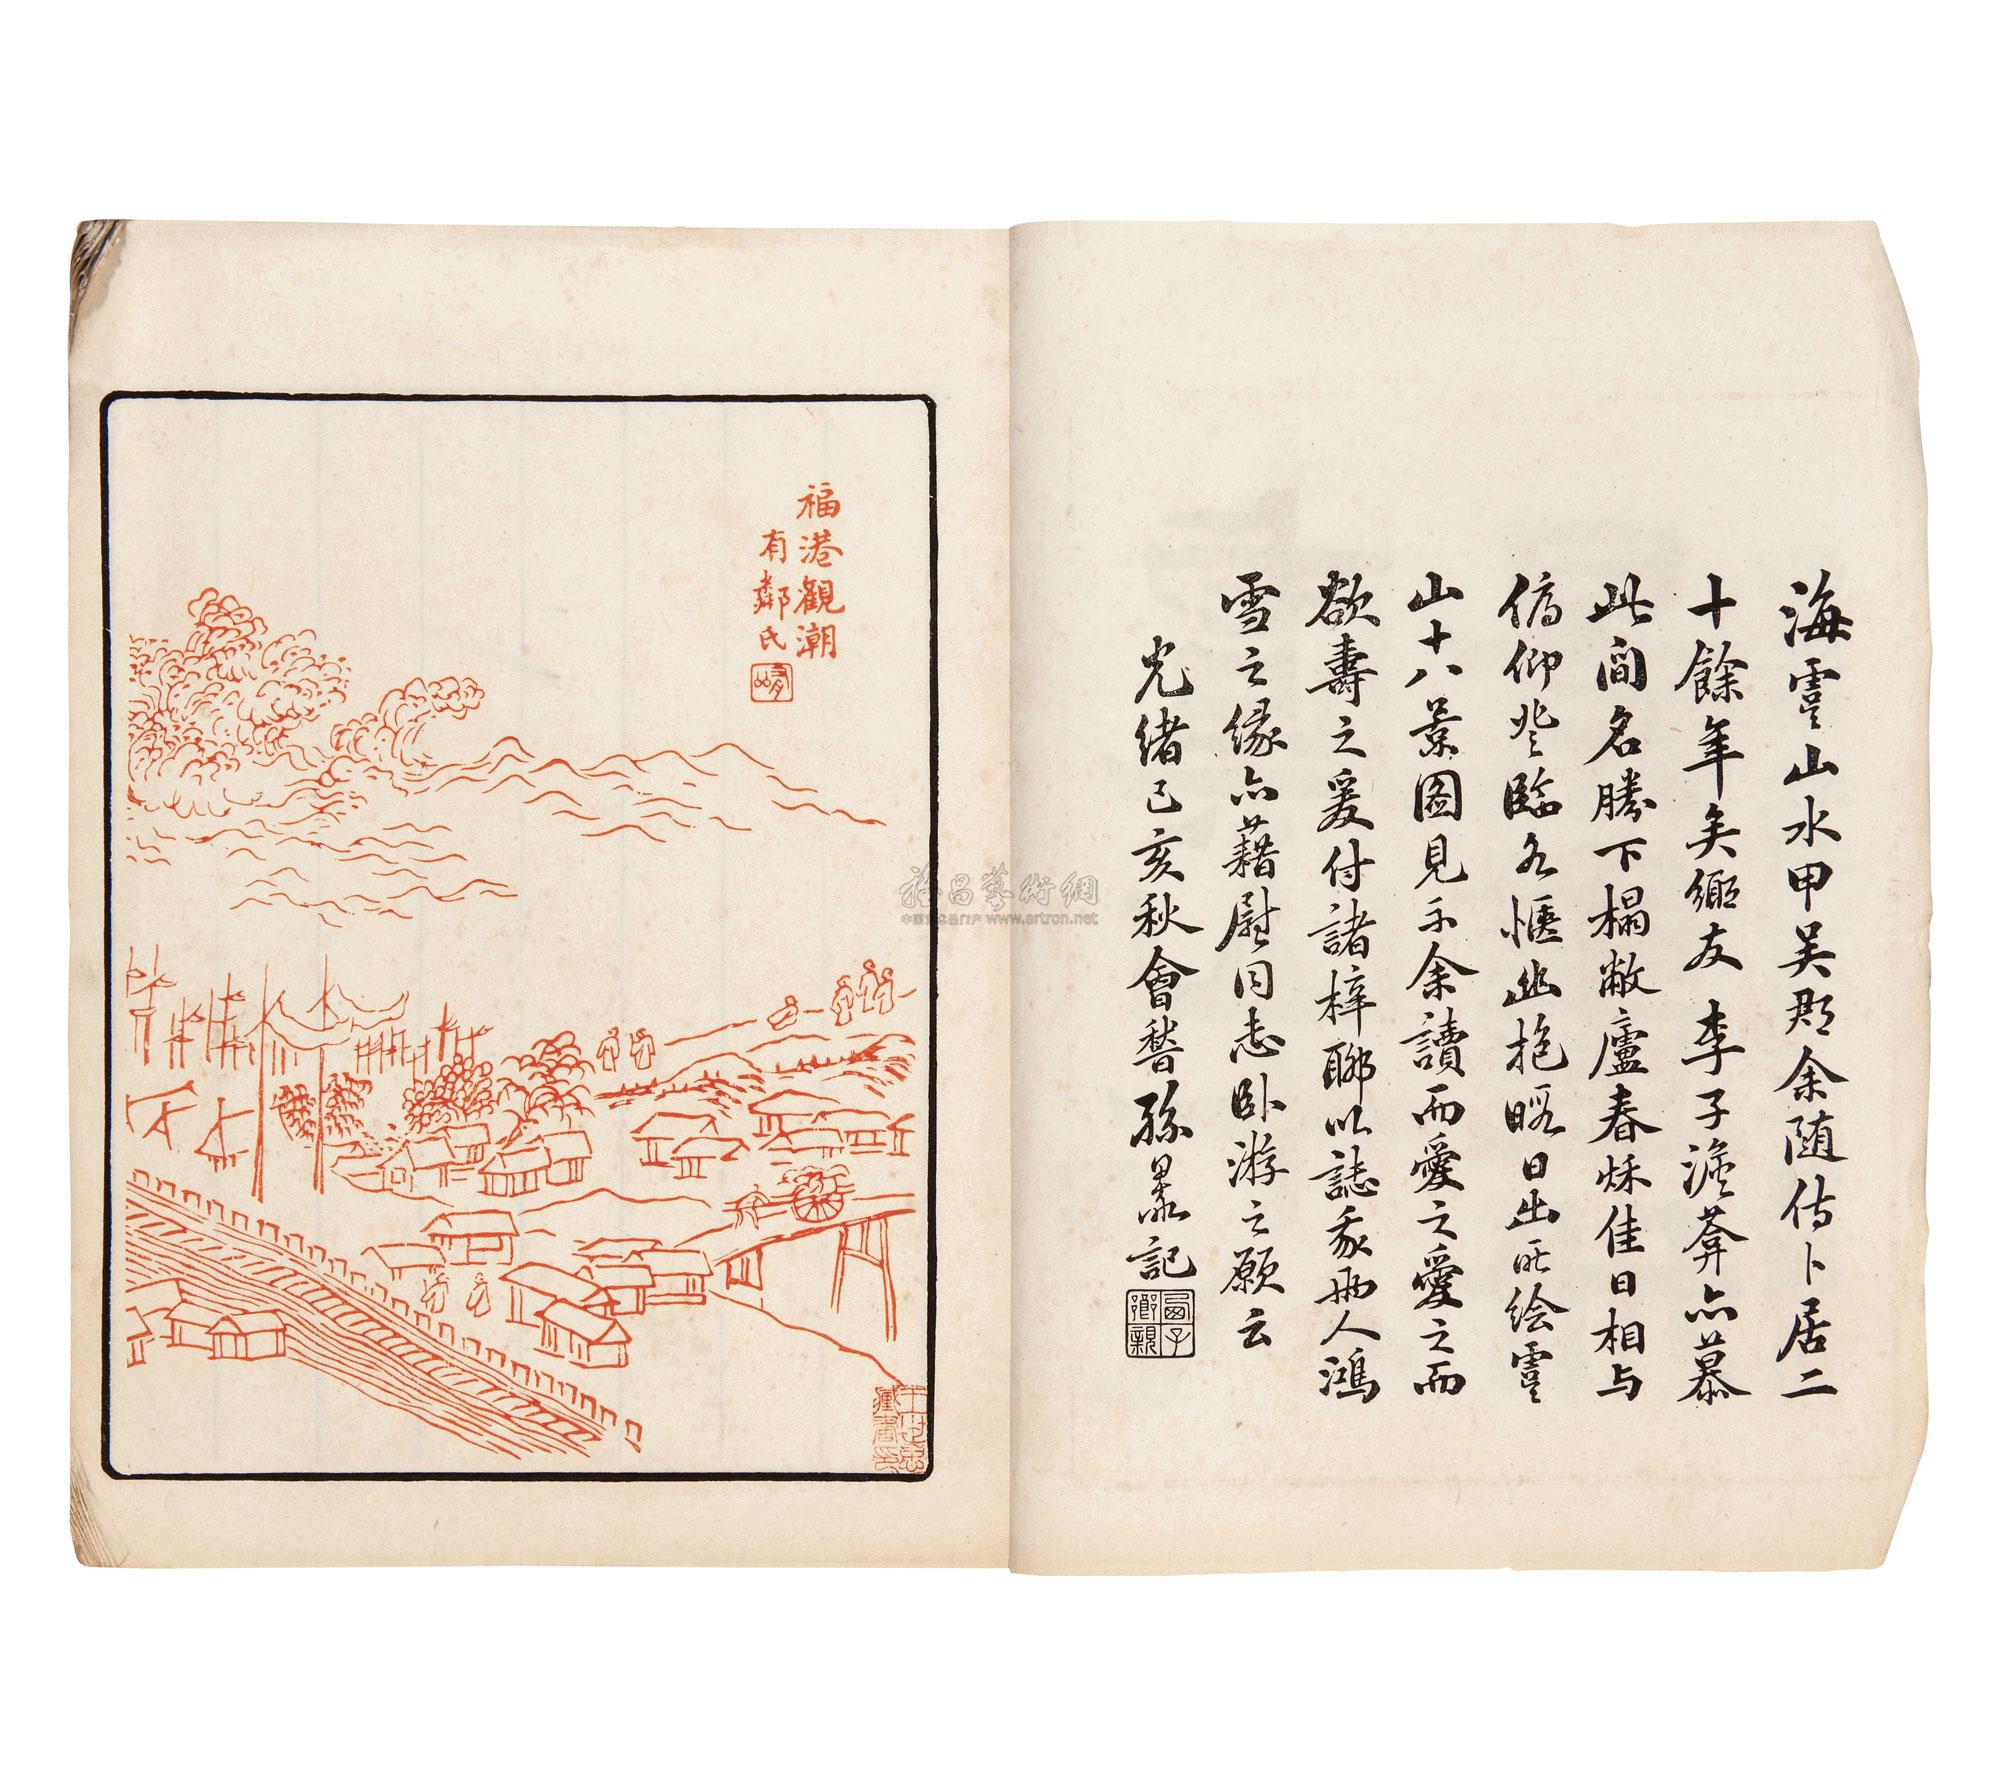 海虞山水甲吳郡余随侍卜居二
十餘年矣鄉友 李子漁莽亦慕
此間名勝下榻敝廬春秌佳日相与
俯仰登臨各愜幽抱暇日出所绘虞
山十八景图見示余讀而愛之愛之而
欲壽之爰付諸梓聊以誌我兩人鴻
雪之緣亦藉慰同志臥游之願云
光緒己亥秋會嵇孫 記
福港觀潮
有鄰氏
裕昌藝術網
www.artron.net